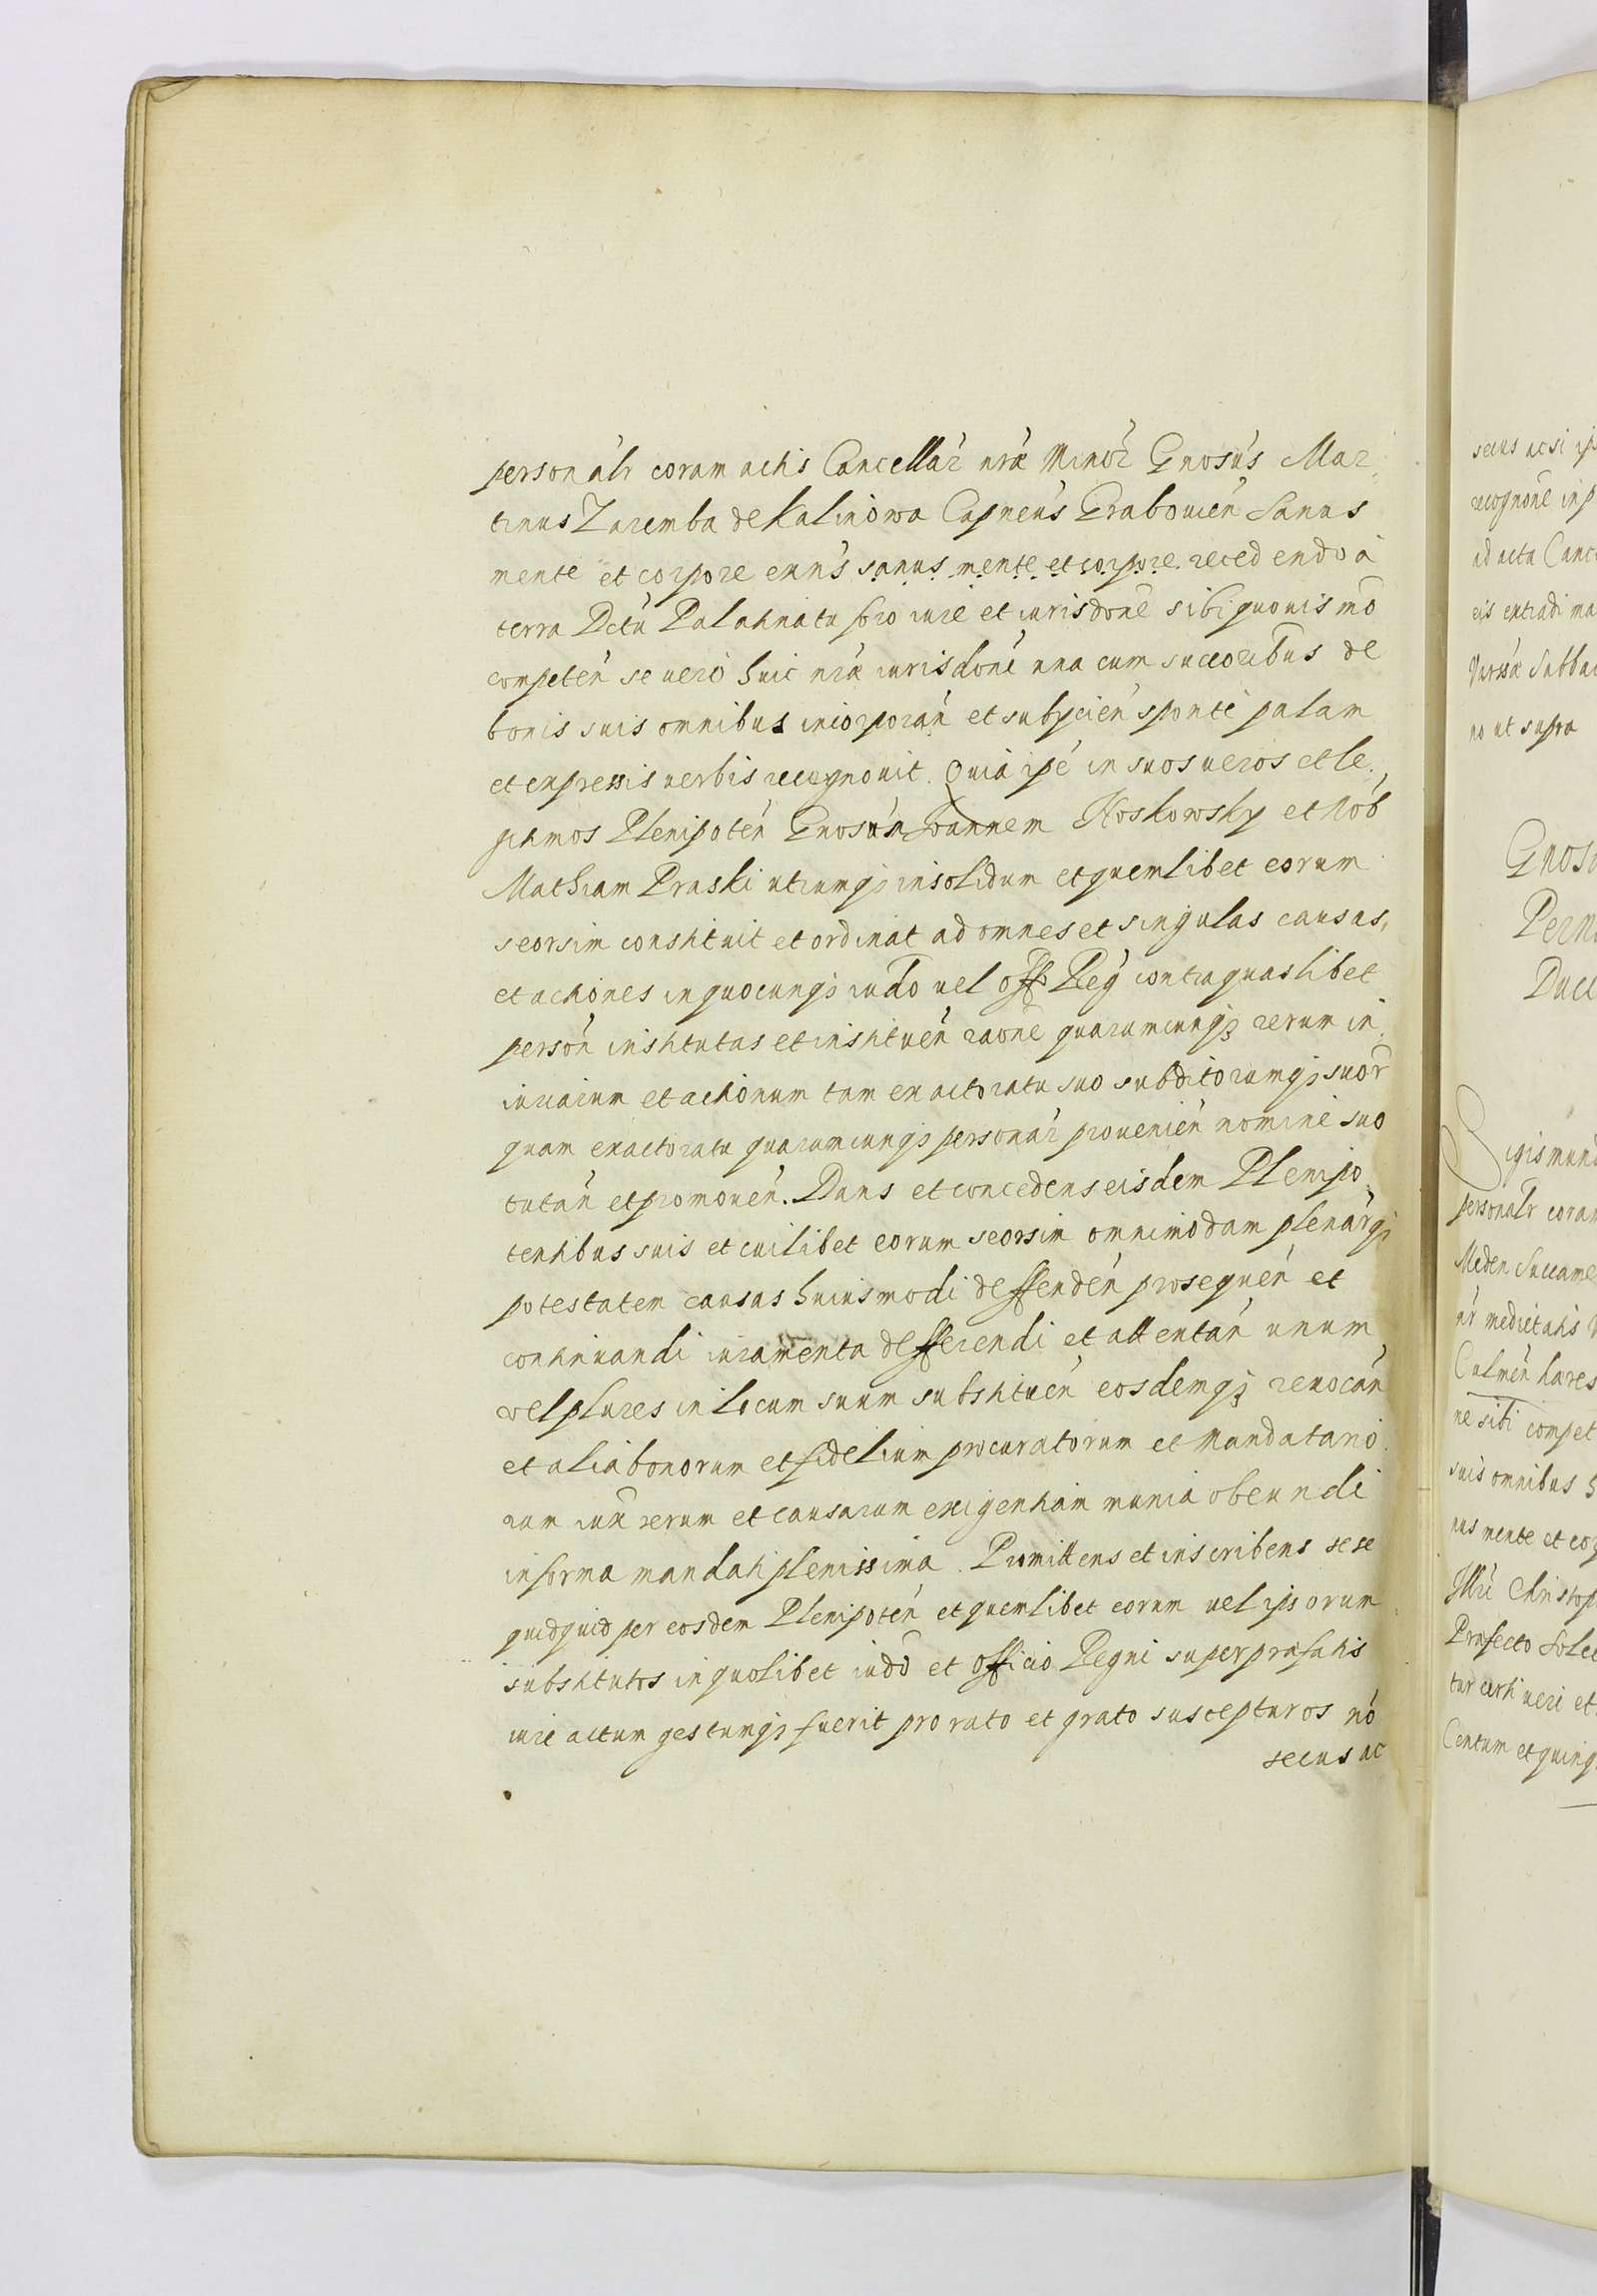 personalr coram actis Cancellar nræ Minor Gnosus Mar
tinus Zaremba de Kalinowa Capneus Grabouien Sanus
mente et corpore enns sanus mente et corpore recedendo a
terra Dctu Palatinatu foro iure et iurisdone sibi quouis mo
competen se vero huic nræ iurisdoni una cum succoribus de
bonis suis omnibus incorporan et subycien sponte palam
et expressis verbis recognouit. Quia ipe in suos veros et le
gitimos Plenipoten Gnosum Joannem Hoskowsky et Nob
Mathiam Praski utrumqz insolidum et quemlibet eorum
seorsim constituit et ordinat ad omnes et singulas causas,
et actiones in quocunqz iudo vel offo Reg contra quaslibet
person institutas et instituen raone quarumcunqz rerum in
iuriarum et actionum tam ex actoratu suo subditorumqz suor
quam ex actoratu quarumcunqz personar prouenien nomine suo
tutan et promouen. Dans et concedens eisdem Plenipo
tentibus suis et cuilibet eorum seorsim omnimodam plenarqz
potestatem causas huiusmodi deffenden prosequen et
continuandi iuramenta defferendi et attentan unum
vel plures in locum suum substituen eosdemqz reuocan
et alia bonorum et fidelium procuratorum et Mandatario
rum iux rerum et causarum exigentiam munia obeundi
in forma mandati plenissima. Promittens et inscribens sese
quidquid per eosdem Plenipoten et quemlibet eorum vel ipsorum
substitutos in quolibet iudo et officio Regni super præfatis
iure actum gestumqz fuerit pro rato et grato suscepturos no
secus ac
secus ac si ips
recognone in p
ad acta Canc
eis extradi ma
Varsæ Sabba
no ut supra
Gnos
Pern
Duce
Sigismund
personalr coram
Meden Succame
ar medietatis
Culmen hæres
ne sibi compet
suis omnibus h
nus mente et cor
Illri Christop
Præfecto Solec
tur certi veri et
Centum et quinq